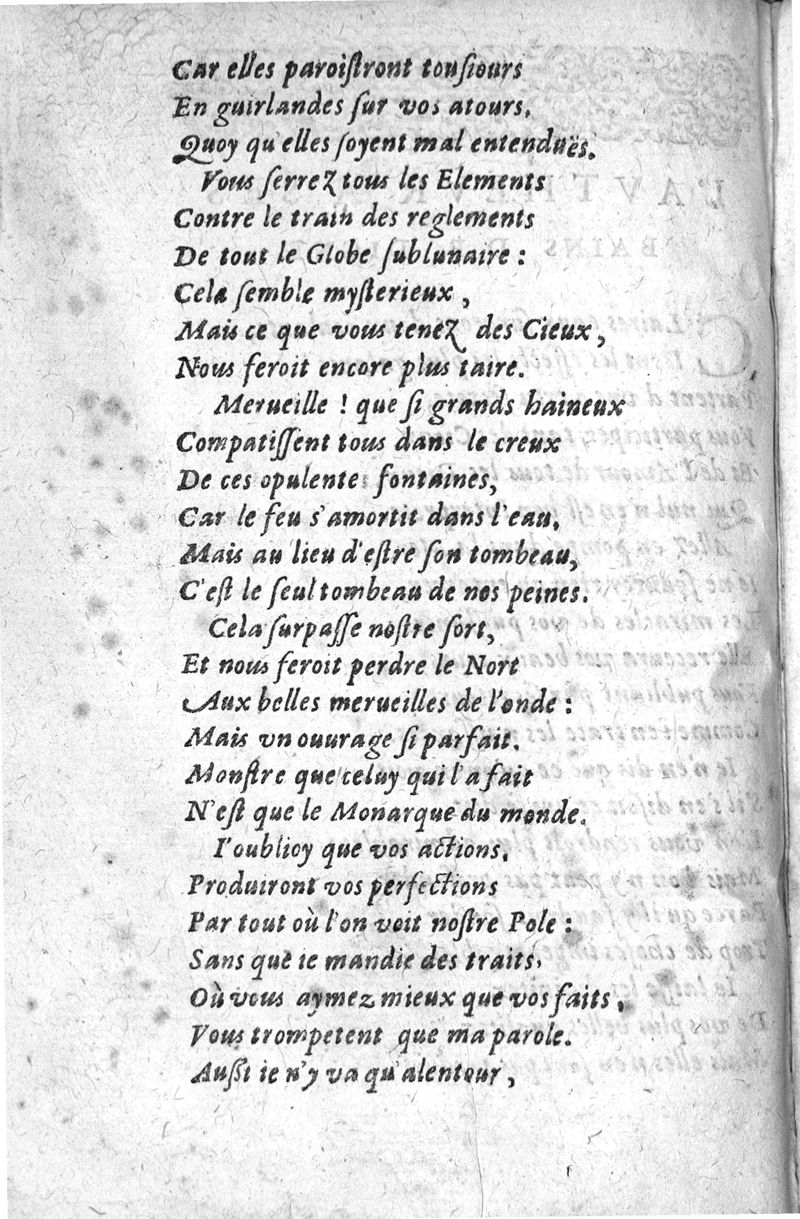 Car elles paroiſtront touſiours
En guirlandes ſur vos atours,
Quoy qu'elles ſoyent mal entenduës.
Vous ſerrez tous les Elements
Contre le train des reglements
De tout le Globe ſublunaire :
Cela ſemble myſterieux ,
Mais ce que vous tenez des Cieux ,
Nous feroit encore plus taire.
Merueille ! que ſi grands haineux
Compatiſſent tous dans le creux
De ces opulente fontaines,
Car le feu s'amortit dans l'eau,
Mais au lieu d'eſtre ſon tombeau,
C'eſt le ſeul tombeau de nos peines.
Cela ſurpaſſe noſtre ſort,
Et nous feroit perdre le Nort
Aux belles merueilles de l'onde :
Mais vn ouurage ſi parfait.
Monſtre que celuy qui l'a fait
N'eſt que le Monarque du monde.
I'oublioy que vos actions,
Produiront vos perfections
Par tout où l'on voit noſtre Pole :
Sans que ie mandie des traits,
Où vous aymez mieux que vos faits ,
Vous trompetent que ma parole.
Auſſi ie n'y va qu'alentour ,